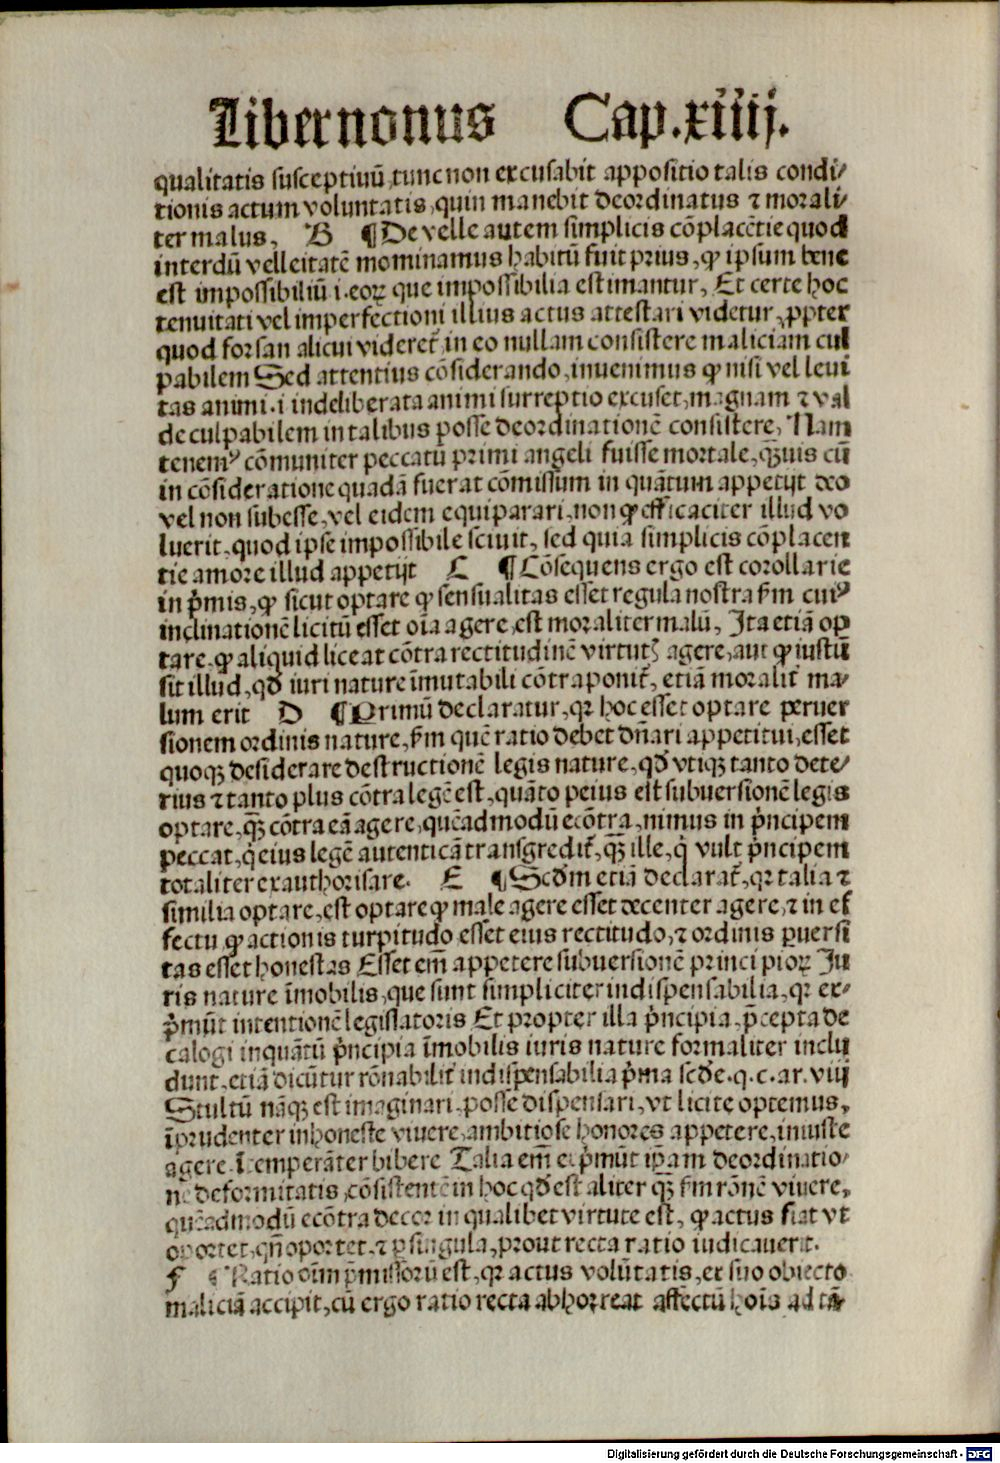 Liber nonus Cap.xiiij.
qualitatis susceptiuū, tunc non excusabit appositio talis condi⸗
tionis actum voluntatis, quin manebit deordinatus ⁊ morali⸗
ter malus, B ¶ De velle autem simplicis cōplacētie quod
interdū velleitatē mominamus habitū fuit prius, ꝙ ipsum bene
est impossibiliū i. eoꝝ que impossibilia estimantur, Et certe hoc
tenuitati vel imperfectioni illius actus attestari videtur, ꝓpter
quod forsan alicui videret̄ in eo nullam consistere maliciam cul
pabilem Sed attentius cōsiderando, inuenimus ꝙ nisi vel leui
tas animi. i indeliberata animi surreptio excuset, magnam ⁊ val
de culpabilem in talibus posse deordinationē consistere, Nam
tenemꝰ cōmuniter peccatū primi angeli fuisse mortale, qꝫuis cū
in cōsideratione quadā fuerat cōmissum in quātum appetijt deo
vel non subesse, vel eidem equiparari, non ꝙ efficaciter illud vo
luerit, quod ipse impossibile sciuit, sed quia simplicis cōplacen
tie amore illud appetijt C ¶ Cōsequens ergo est corollarie
in p̄mis, ꝙ sicut optare ꝙ sensualitas esset regula nostra ẜm cuiꝰ
inclinationē licitū esset oīa agere, est moraliter malū, Ita etiā op
tare, ꝙ aliquid liceat cōtra rectitudinē virtutꝭ agere, aut ꝙ iustū
sit illud, qđ iuri nature īmutabili cōtraponit̄, etiā moralit̄ ma⸗
lum erit D ¶ Primū declaratur, qꝛ hoc esset optare peruer
sionem ordinis nature, ẜm quē ratio debet dn̄ari appetitui, esset
quoqꝫ desiderare destructionē legis nature, qđ vtiqꝫ tanto dete⸗
rius ⁊ tanto plus cōtra legē est, quāto peius est subuersionē legis
optare, qꝫ̄ cōtra eā agere, quēadmodū ecōtra, nimus in p̄ncipem
peccat, q̇ eius legē autenticā transgredit̄, qꝫ̄ ille, q̇ vult p̄ncipem
totaliter exauthorisare. E ¶ Scđm etiā declarat̄, qꝛ talia ⁊
similia optare, est optare ꝙ male agere esset decenter agere, ⁊ in ef
fectu ꝙ actionis turpitudo esset eius rectitudo, ⁊ ordinis ꝑuersi
tas esset honestas Esset em̄ appetere subuersionē principioꝝ Iu
ris nature īmobilis, que sunt simpliciter indispensabilia, qꝛ ex⸗
p̄mūt intentionē legislatoris Et propter illa p̄ncipia, p̄cepta de
calogi inquātū p̄ncipia īmobilis iuris nature formaliter inclu
dunt, etiā dicūtur rōnabilit̄ indispensabilia p̄ma scđe. q. c. ar. viij
Stultū nāqꝫ est imaginari, posse dispensari, vt licite optemus,
īprudenter inhoneste viuere, ambitiose honores appetere, iniuste
agere ītemperāter bibere Talia em̄ exp̄mūt ip̄am deordinatio⸗
nē deformitatis, cōsistentē in hoc qđ est aliter qꝫ̄ ẜm rōnē viuere,
quēadmodū ecōtra decor in qualibet virtute est, ꝙ actus fiat vt
oportet, qn̄ oportet, ⁊ ꝑ singula, prout recta ratio iudicauerit.
F ¶ Ratio oīm p̄missorū est, qꝛ actus volūtatis, ex suo obiecto
maliciā accipit, cū ergo ratio recta abhorreat affectū hoīs ad tā
Digitalisierung gefördert durch die Deutsche Forschungsgemeinschaft - DFG